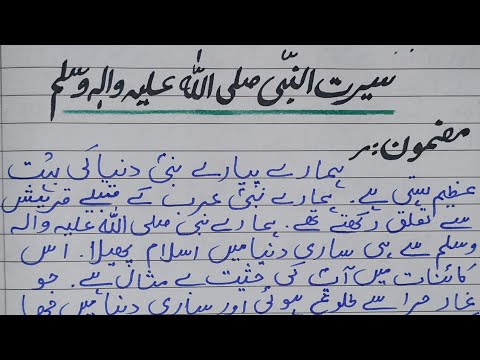 سیرت النبّی صلی اللہ علیہ والہ وسلم
مضمون:
ہمارے پیارے نبی دنیا کی بہت
عظیم ہستی ہے۔ ہمارے نبی عرب کے قبیلے قریش
سے تعلق رکھتے تھے۔ ہمارے نبی صلی اللہ علیہ والہ
وسلم سے ہی ساری دنیا میں اسلام پھیلا۔ اس
کائنات میں آپ کی حثیت بے مثال ہے۔ جو
غار حرا سے طلوع ہوئی اور ساری دنیا میں